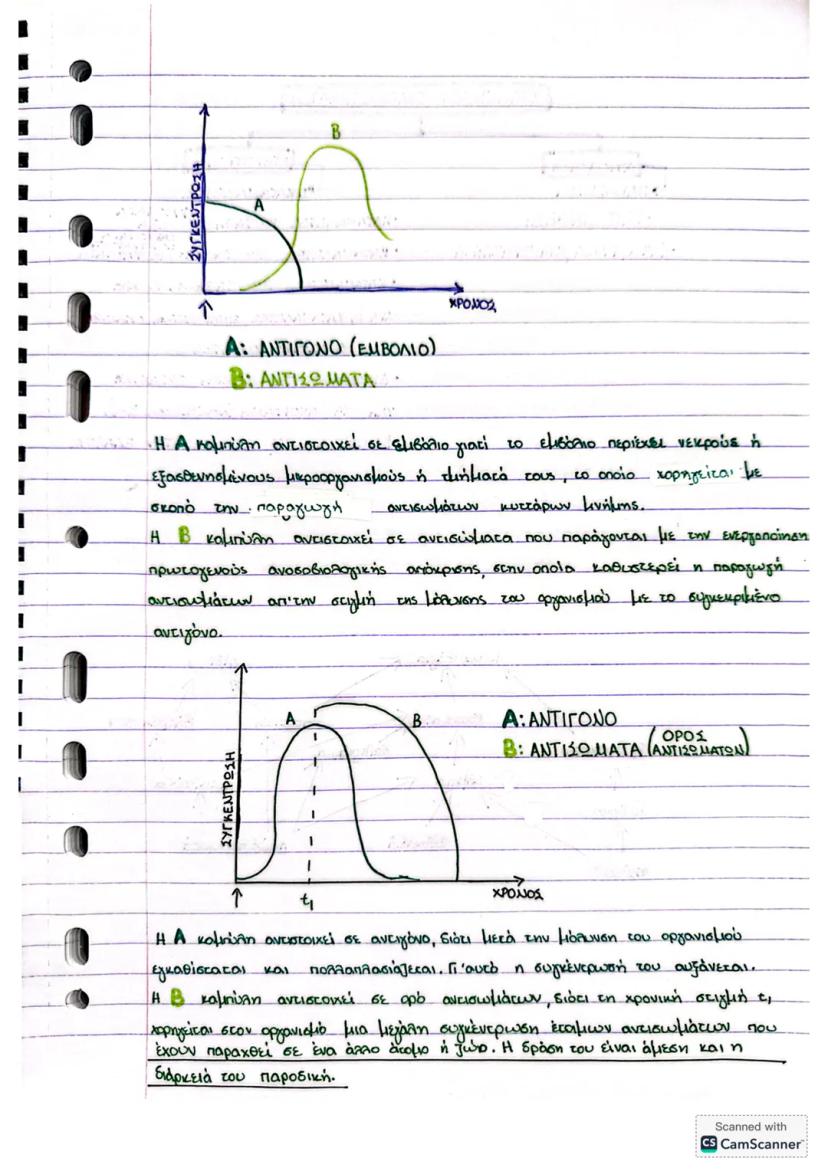 B
A
ΣΥΓΚΕΝΤΡΩΣΗ
ΧΡΟΝΟΣ
Α: ΑΝΤΙΓΟΝΟ (ΕΜΒΟΛΙΟ)
Β: ΑΝΤΙΣΩΜΑΤΑ
Η Α καμπύλη αντιστοιχεί σε εμβόλιο γιατί το εμβόλιο περιέχει νεκρούς ή
εξασθενημένους μικροοργανισμούς ή τμήματά τους, το οποίο χορηγείται με
σκοπό την παραγωγή αντισωμάτων κυττάρων μνήμης.
Η Β καμπύλη αντιστοιχεί σε αντισώματα που παράγονται με την ενεργοποίηση
πρωτογενούς ανοσοβιολογικής απόκρισης, στην οποία καθυστερεί η παραγωγή
αντισωμάτων απ'την στιγμή της μόλυνσης του οργανισμού με το συγκεκριμένο
αντιγόνο.
Α
Β
Α: ΑΝΤΙΓΟΝΟ
Β: ΑΝΤΙΣΩΜΑΤΑ (ΟΡΟΣ ΑΝΤΙΣΩΜΑΤΩΝ)
ΣΥΓΚΕΝΤΡΩΣΗ
t₁
ΧΡΟΝΟΣ
Η Α καμπύλη αντιστοιχεί σε αντιγόνο, διότι μετά την μόλυνση του οργανισμού
εγκαθίσταται και πολλαπλασιάζεται. Γι'αυτό η συγκέντρωσή του αυξάνεται.
Η Β καμπύλη αντιστοιχεί σε ορό αντισωμάτων, διότι τη χρονική στιγμή t₁
χορηγείται στον οργανισμό μια μεγάλη συγκέντρωση έτοιμων αντισωμάτων που
έχουν παραχθεί σε ένα άλλο άτομο ή ζώο. Η δράση του είναι άμεση και η
διάρκειά του παροδική.
Scanned with
CS CamScanner